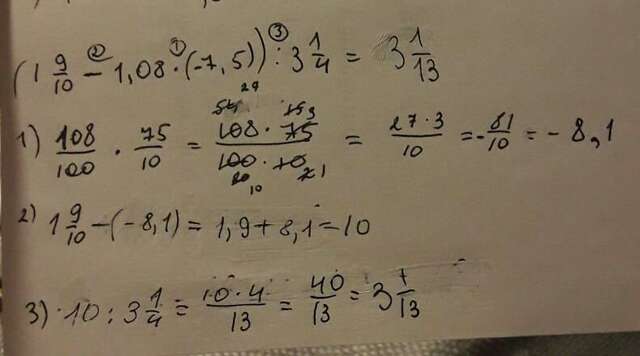 (1 9/10 ② − 1,08 ① · (−7,5)) ③ : 3 1/4 = 3 1/13
1) 108/100 · 75/10 = 108 · 75/100 · 10 = 27 · 3/10 = −81/10 = −8,1
2) 1 9/10 − (−8,1) = 1,9 + 8,1 = 10
3) 10 : 3 1/4 = 10 · 4/13 = 40/13 = 3 1/13